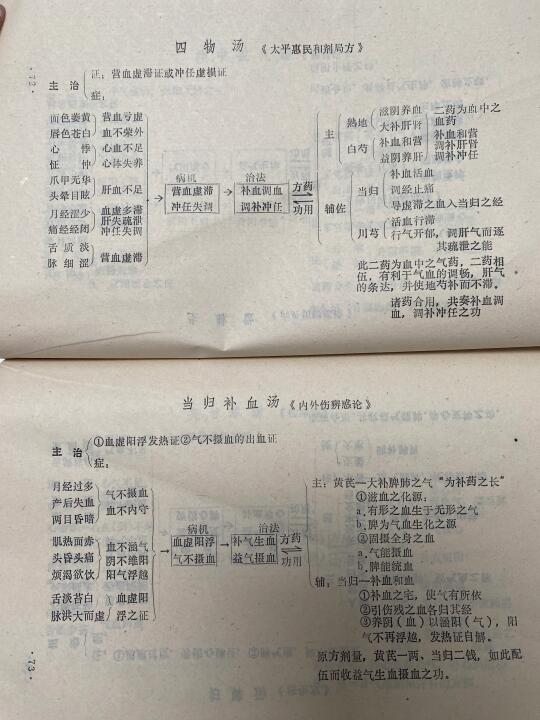 四物汤 《太平惠民和剂局方》
·72·
主治
证：营血虚滞证或冲任虚损证
症：
面色萎黄 营血亏虚
唇色苍白 血不荣外
心悸 心血不足
怔忡 心体失养
爪甲无华 肝血不足
头晕目眩
月经涩少 血虚多滞
肝失疏泄
痛经经闭 冲任失调
舌质淡 营血虚滞
脉细涩
病机
营血虚滞
冲任失调
治法
补血调血
调补冲任
方药
功用
主
熟地 滋阴养血 二药为血中之
大补肝肾 血药
白芍 补血和营 补血和营
益阴养肝 调补肝肾
调补冲任
辅佐
当归 补血活血
调经止痛
导虚滞之血入当归之经
川芎 活血行滞
行气开郁，调肝气而遂
其疏泄之能
此二药为血中之气药，二药相
伍，有利于气血的调畅，肝气
的条达，并使地芍补而不滞。
诸药合用，共奏补血调
血，调补冲任之功
当归补血汤 《内外伤辨惑论》
主治
①血虚阳浮发热证②气不摄血的出血证
症：
月经过多 气不摄血
产后失血 血不内守
两目昏暗
肌热面赤 血不涵气
头昏头痛 阴不维阳
烦渴欲饮 阳气浮越
舌淡苔白 血虚阳
脉洪大而虚 浮之征
病机
血虚阳浮
气不摄血
治法
补气生血
益气摄血
方药
功用
主：黄芪—大补脾肺之气“为补药之长”
①滋血之化源：
a.有形之血生于无形之气
b.脾为气血生化之源
②固摄全身之血
a.气能摄血
b.脾能统血
辅：当归—补血和血
①补血之宅，使气有所依
②引伤残之血各归其经
③养阴（血）以涵阳（气），阳
气不再浮越，发热证自解。
原方剂量，黄芪一两、当归二钱，如此配
伍而收益气生血摄血之功。
·73·